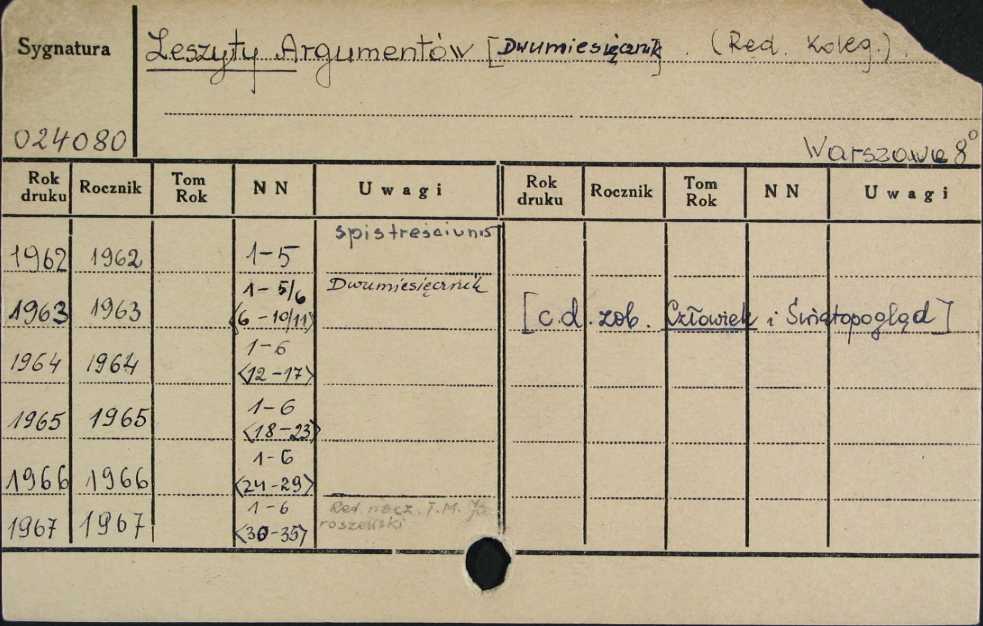 Sygnatura
Zeszyty Argumentów [Dwumiesięcznik]. (Red. Koleg.).
024080
Warszawa 8°
Rok druku Rocznik Tom Rok NN Uwagi Rok druku Rocznik Tom Rok NN Uwagi
spis treści
1962 1962 1-5
1-5/6 Dwumiesięcznik
1963 1963 <6-10/11> [c.d. zob. Człowiek i Światopogląd]
1-6
1964 1964 <12-17>
1-6
1965 1965 <18-23>
1-6
1966 1966 <24-29>
1-6 Red. nacz. T.M. Ja
1967 1967 <30-35> roszewski